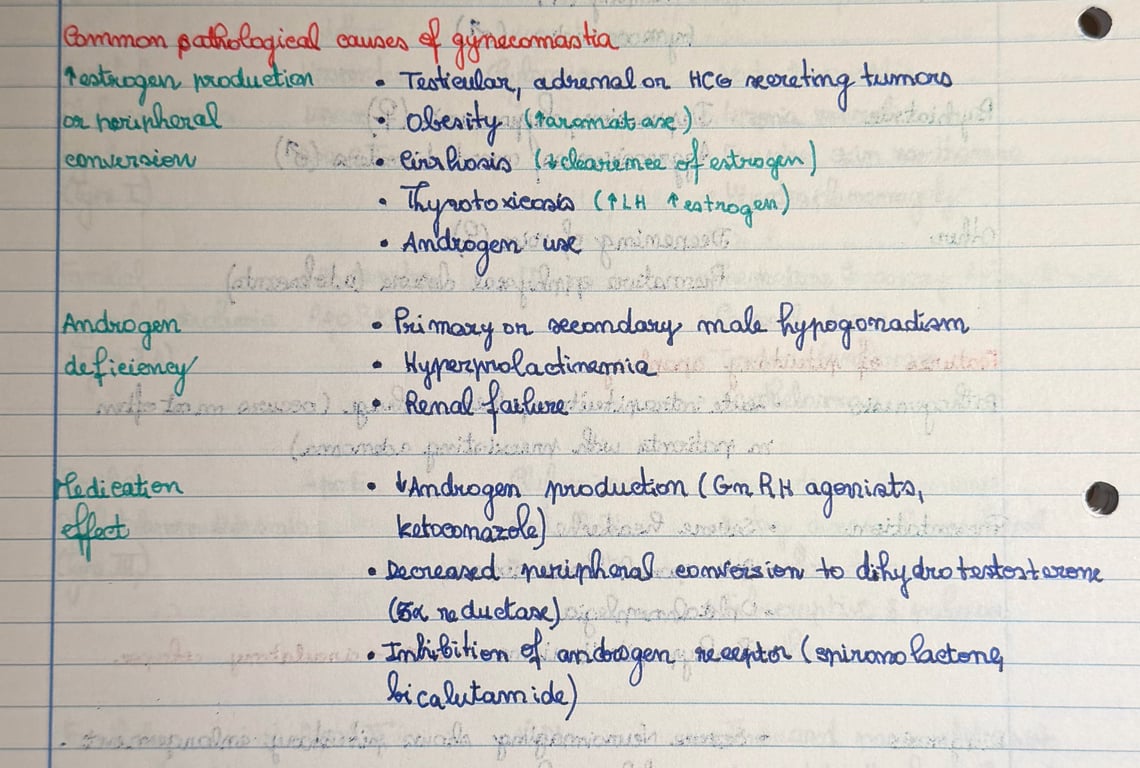 Common pathological causes of gynecomastia
↑estrogen production • Testicular, adrenal or HCG secreting tumors
or peripheral • Obesity (↑aromatase)
conversion • Cirrhosis (↓clearence of estrogen)
• Thyrotoxicosis (↑LH ↑estrogen)
• Androgen use
Androgen • Primary or secondary male hypogonadism
deficiency • Hyperprolactinemia
• Renal failure
Medication • ↓Androgen production (GnRH agonists,
effect ketoconazole)
• Decreased peripheral conversion to dihydrotestosterone
(5α reductase)
• Inhibition of androgen receptor (spironolactone,
bicalutamide)